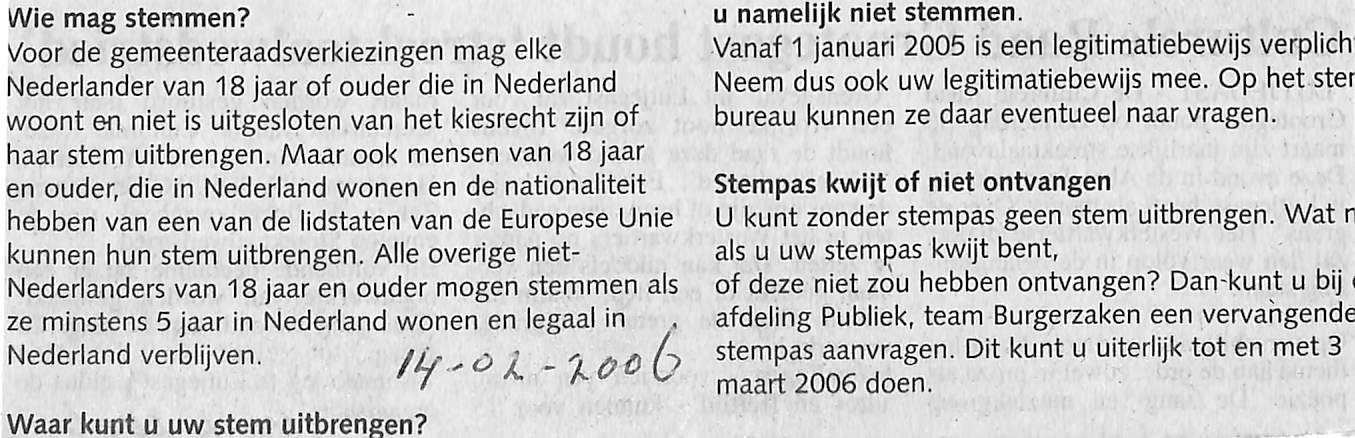 Wie mag stemmen?
Voor de gemeenteraadsverkiezingen mag elke
Nederlander van 18 jaar of ouder die in Nederland
woont en niet is uitgesloten van het kiesrecht zijn of
haar stem uitbrengen. Maar ook mensen van 18 jaar
en ouder, die in Nederland wonen en de nationaliteit
hebben van een van de lidstaten van de Europese Unie
kunnen hun stem uitbrengen. Alle overige niet-
Nederlanders van 18 jaar en ouder mogen stemmen als
ze minstens 5 jaar in Nederland wonen en legaal in
Nederland verblijven.
14-02-2006
Waar kunt u uw stem uitbrengen?
u namelijk niet stemmen.
Vanaf 1 januari 2005 is een legitimatiebewijs verplich
Neem dus ook uw legitimatiebewijs mee. Op het ster
bureau kunnen ze daar eventueel naar vragen.
Stempas kwijt of niet ontvangen
U kunt zonder stempas geen stem uitbrengen. Wat n
als u uw stempas kwijt bent,
of deze niet zou hebben ontvangen? Dan kunt u bij
afdeling Publiek, team Burgerzaken een vervangende
stempas aanvragen. Dit kunt u uiterlijk tot en met 3
maart 2006 doen.